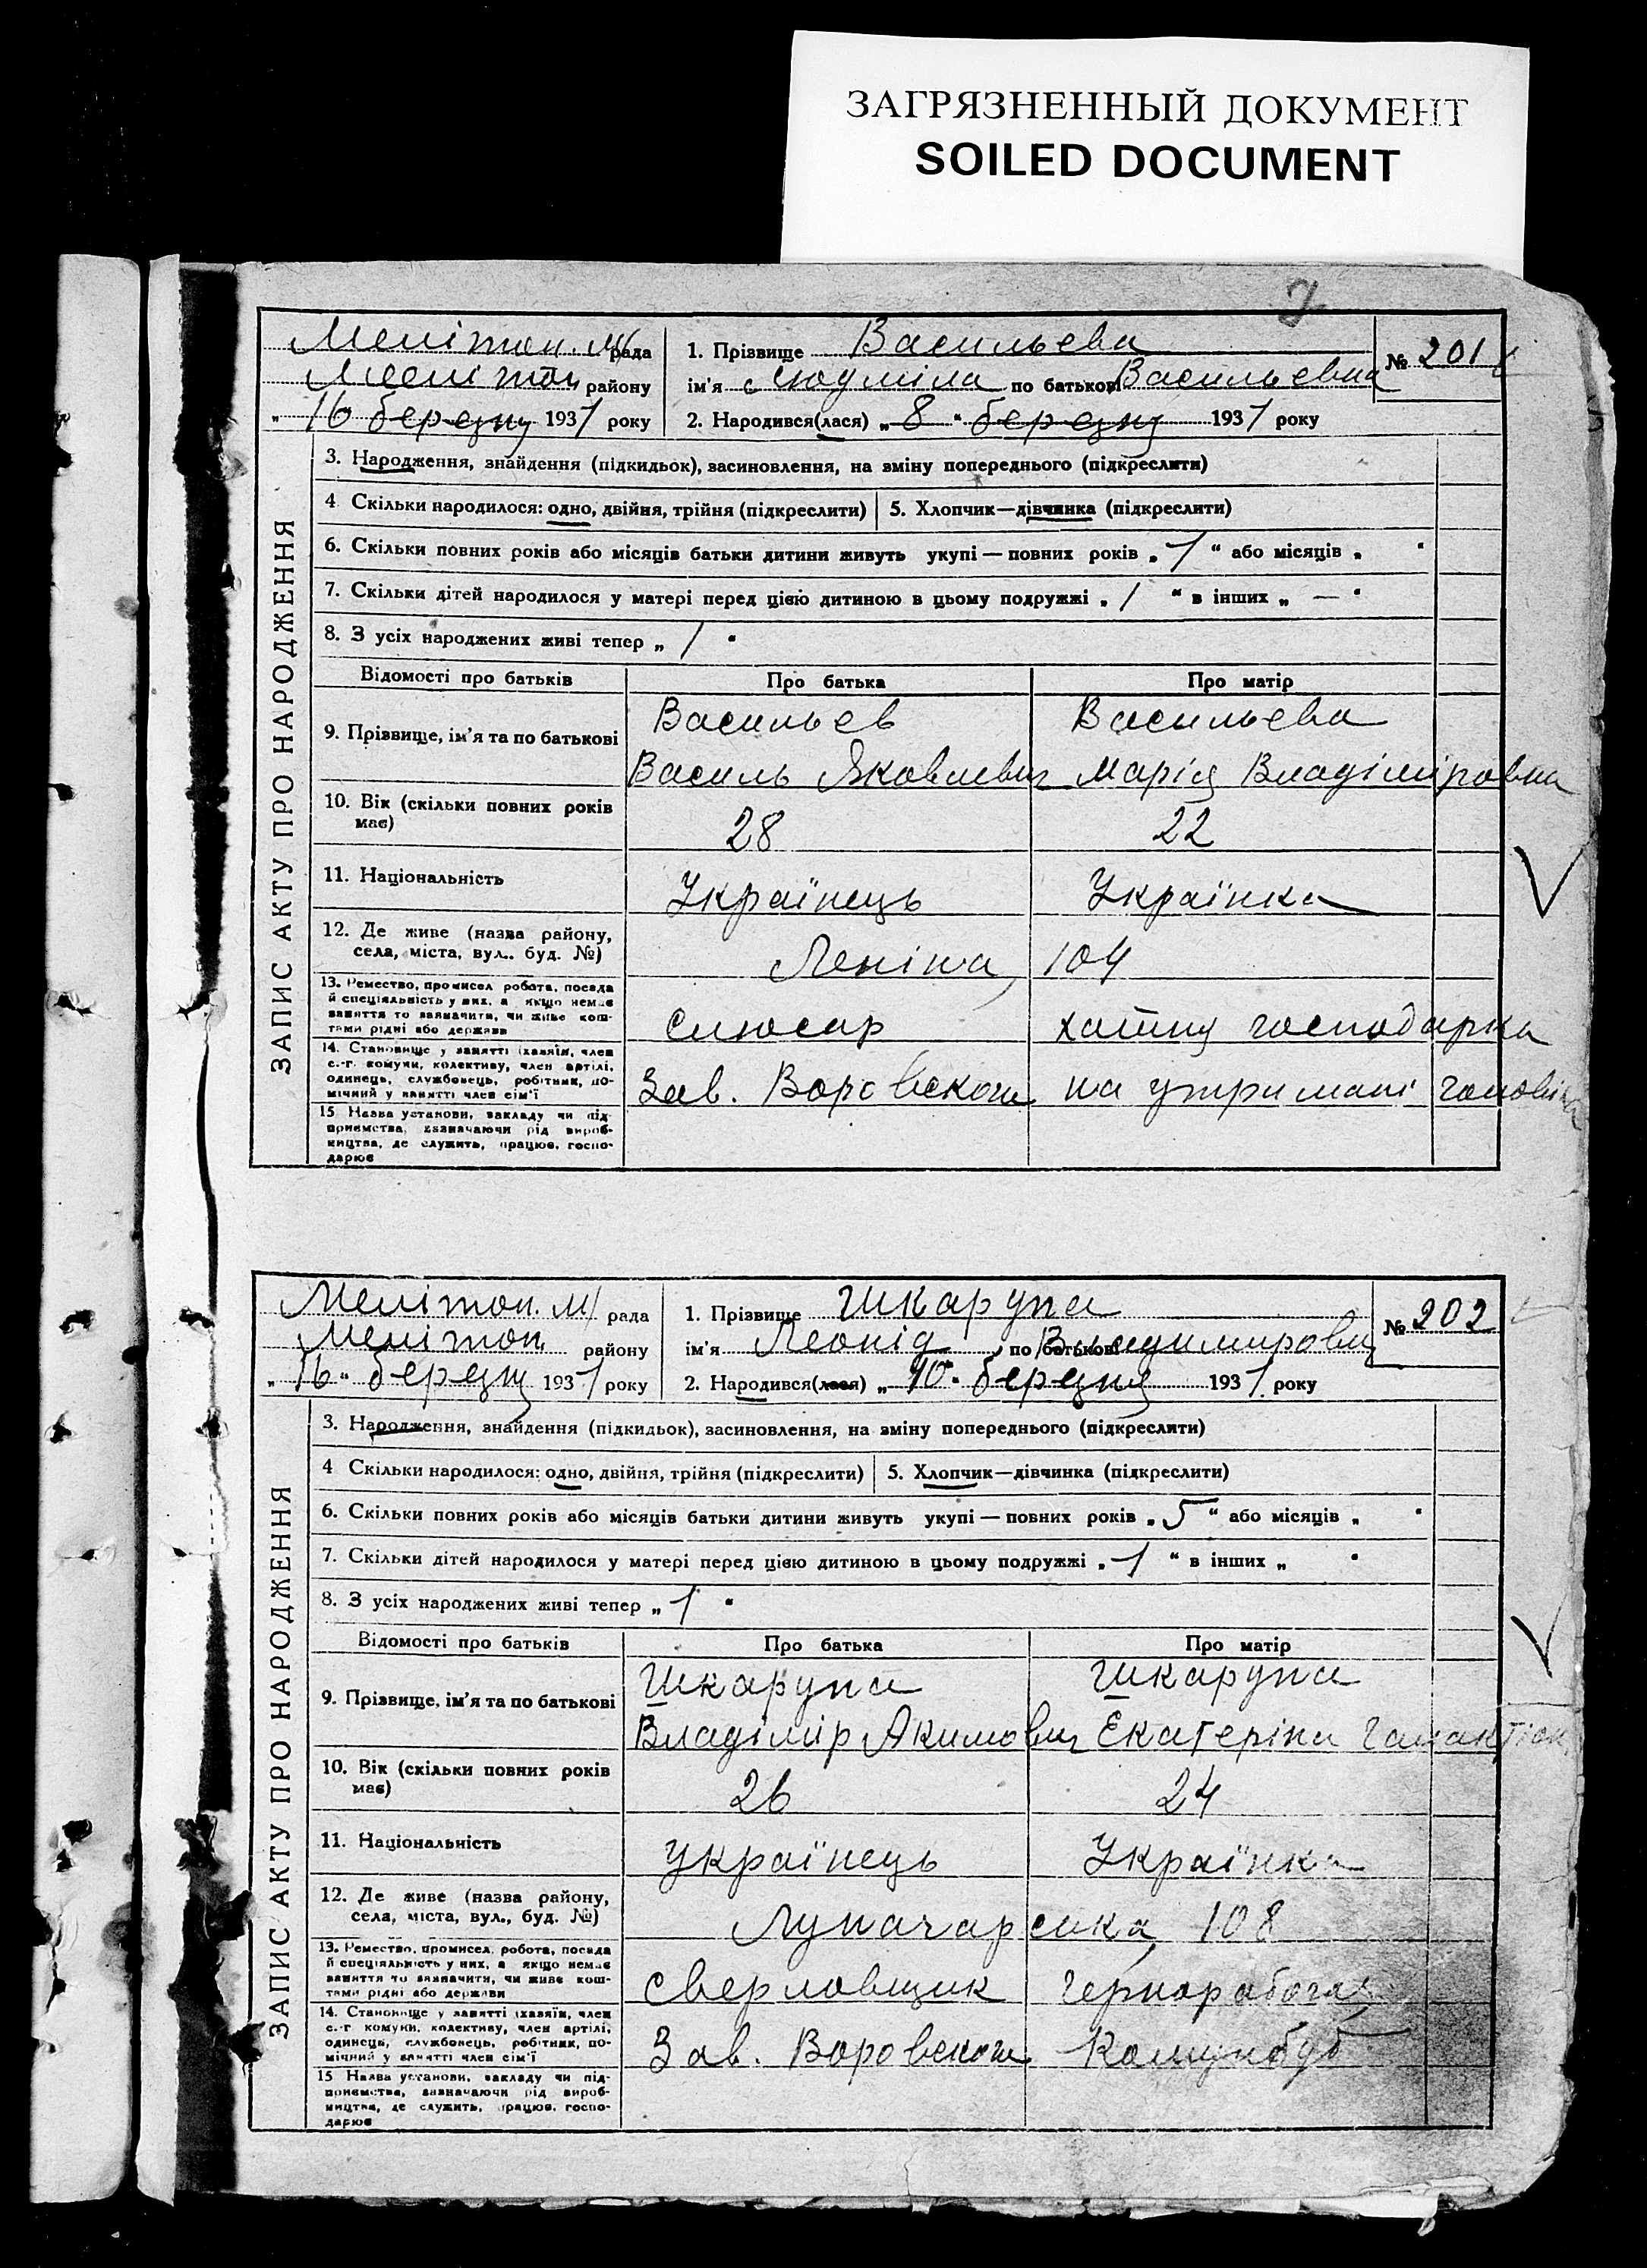 ЗАГРЯЗНЕННЫЙ ДОКУМЕНТ
SOILED DOCUMENT
ЗАПИС АКТУ ПРО НАРОДЖЕННЯ
Мелітоп. М/рада
Мелітоп району
„ 16 березня 1937 року
1. Прізвище Васильєва
ім'я Людміла по батькові Васильевна
№ 201
2. Народився(лася) „ 8 “ березня 1937 року
3. Народження, знайдення (підкидьок), засиновлення, на зміну попереднього (підкреслити)
4 Скільки народилося: одно, двійня, трійня (підкреслити) 5. Хлопчик—дівчинка (підкреслити)
6. Скільки повних років або місяців батьки дитини живуть укупі — повних років „ 1 “ або місяців „ “
7. Скільки дітей народилося у матері перед цією дитиною в цьому подружжі „ 1 “ в інших „ — “
8. З усіх народжених живі тепер „ 1 “
Відомості про батьків Про батька Про матір
9. Прізвище, ім'я та по батькові
Васильев Васильева
Василь Яковлевич Марія Владіміровна
10. Вік (скільки повних років має) 28 22
11. Національність Українець Українка
12. Де живе (назва району, села, міста, вул., буд. №) Леніна, 104
13. Ремество, промисел робота, посада й спеціяльність у них, а якщо немає заняття то зазначити, чи живе коштами рідні або держави
слюсар хатня господарка
14. Становище у занятті (хазяїн, член с.-г. комуни, колективу, член артілі, одинець, службовець, робітник, помічний у занятті член сім'ї
Зав. Воровского на утримані чоловіка
15 Назва установи, закладу чи підприємства, зазначаючи рід виробництва, де служить, працює, господарює
ЗАПИС АКТУ ПРО НАРОДЖЕННЯ
Мелітоп. М/ рада
Мелітоп. району
„ 16 “ березня 1937 року
1. Прізвище Шкарупа
ім'я Леонід по батькові Владимирович
№ 202
2. Народився(лася) „ 10 “ березня 1937 року
3. Народження, знайдення (підкидьок), засиновлення, на зміну попереднього (підкреслити)
4 Скільки народилося: одно, двійня, трійня (підкреслити) 5. Хлопчик—дівчинка (підкреслити)
6. Скільки повних років або місяців батьки дитини живуть укупі — повних років „ 5 “ або місяців „ “
7. Скільки дітей народилося у матері перед цією дитиною в цьому подружжі „ 1 “ в інших „ “
8. З усіх народжених живі тепер „ 1 “
Відомості про батьків Про батька Про матір
9. Прізвище, ім'я та по батькові
Шкарупа Шкарупа
Владімір Акимович Екатеріна
10. Вік (скільки повних років має) 26 24
11. Національність Українець Українка
12. Де живе (назва району, села, міста, вул., буд. №) Луначарська, 108
13. Ремество, промисел, робота, посада й спеціяльність у них, а якщо немає заняття то зазначити, чи живе коштами рідні або держави
сверловщик
14. Становище у занятті (хазяїн, член с.-г. комуни, колективу, член артілі, одинець, службовець, робітник, помічний у занятті член сім'ї
Зав. Воровского Комунбуд
15 Назва установи, закладу чи підприємства, зазначаючи рід виробництва, де служить, працює, господарює